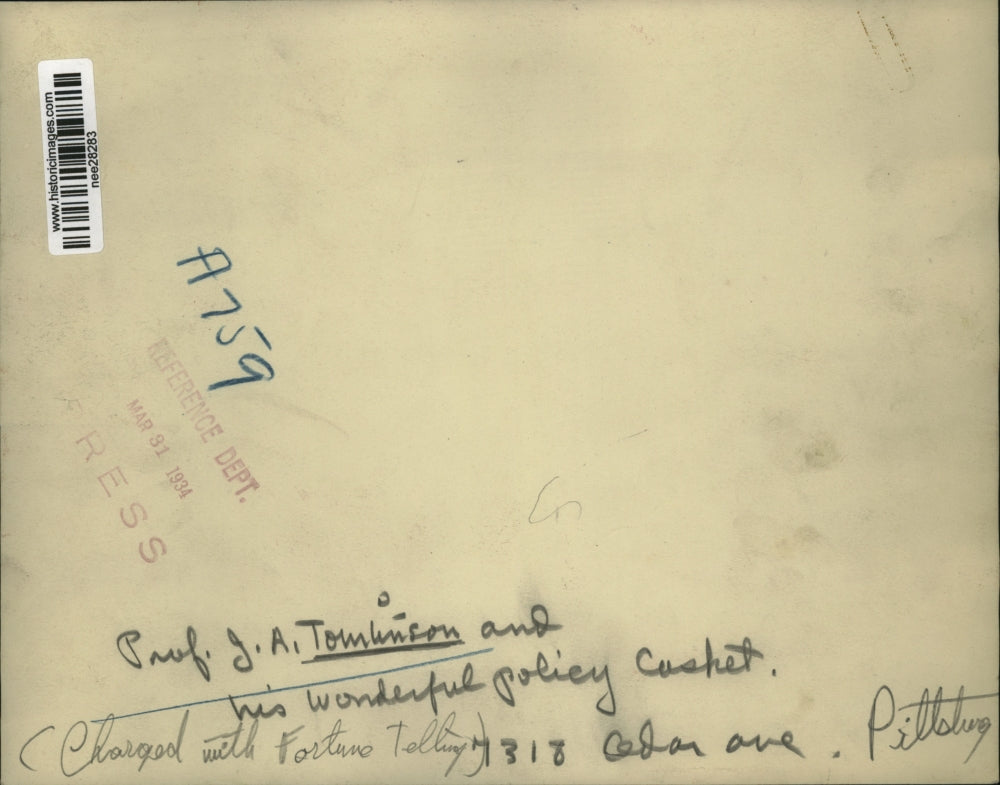 www.historicimages.com
nee28283
A759
REFERENCE DEPT.
MAR 31 1934
PRESS
Prof. J. A. Tomlinson and
his wonderful policy casket.
(Charged with Fortune Telling) 1318 Cedar ave. Pittsburg